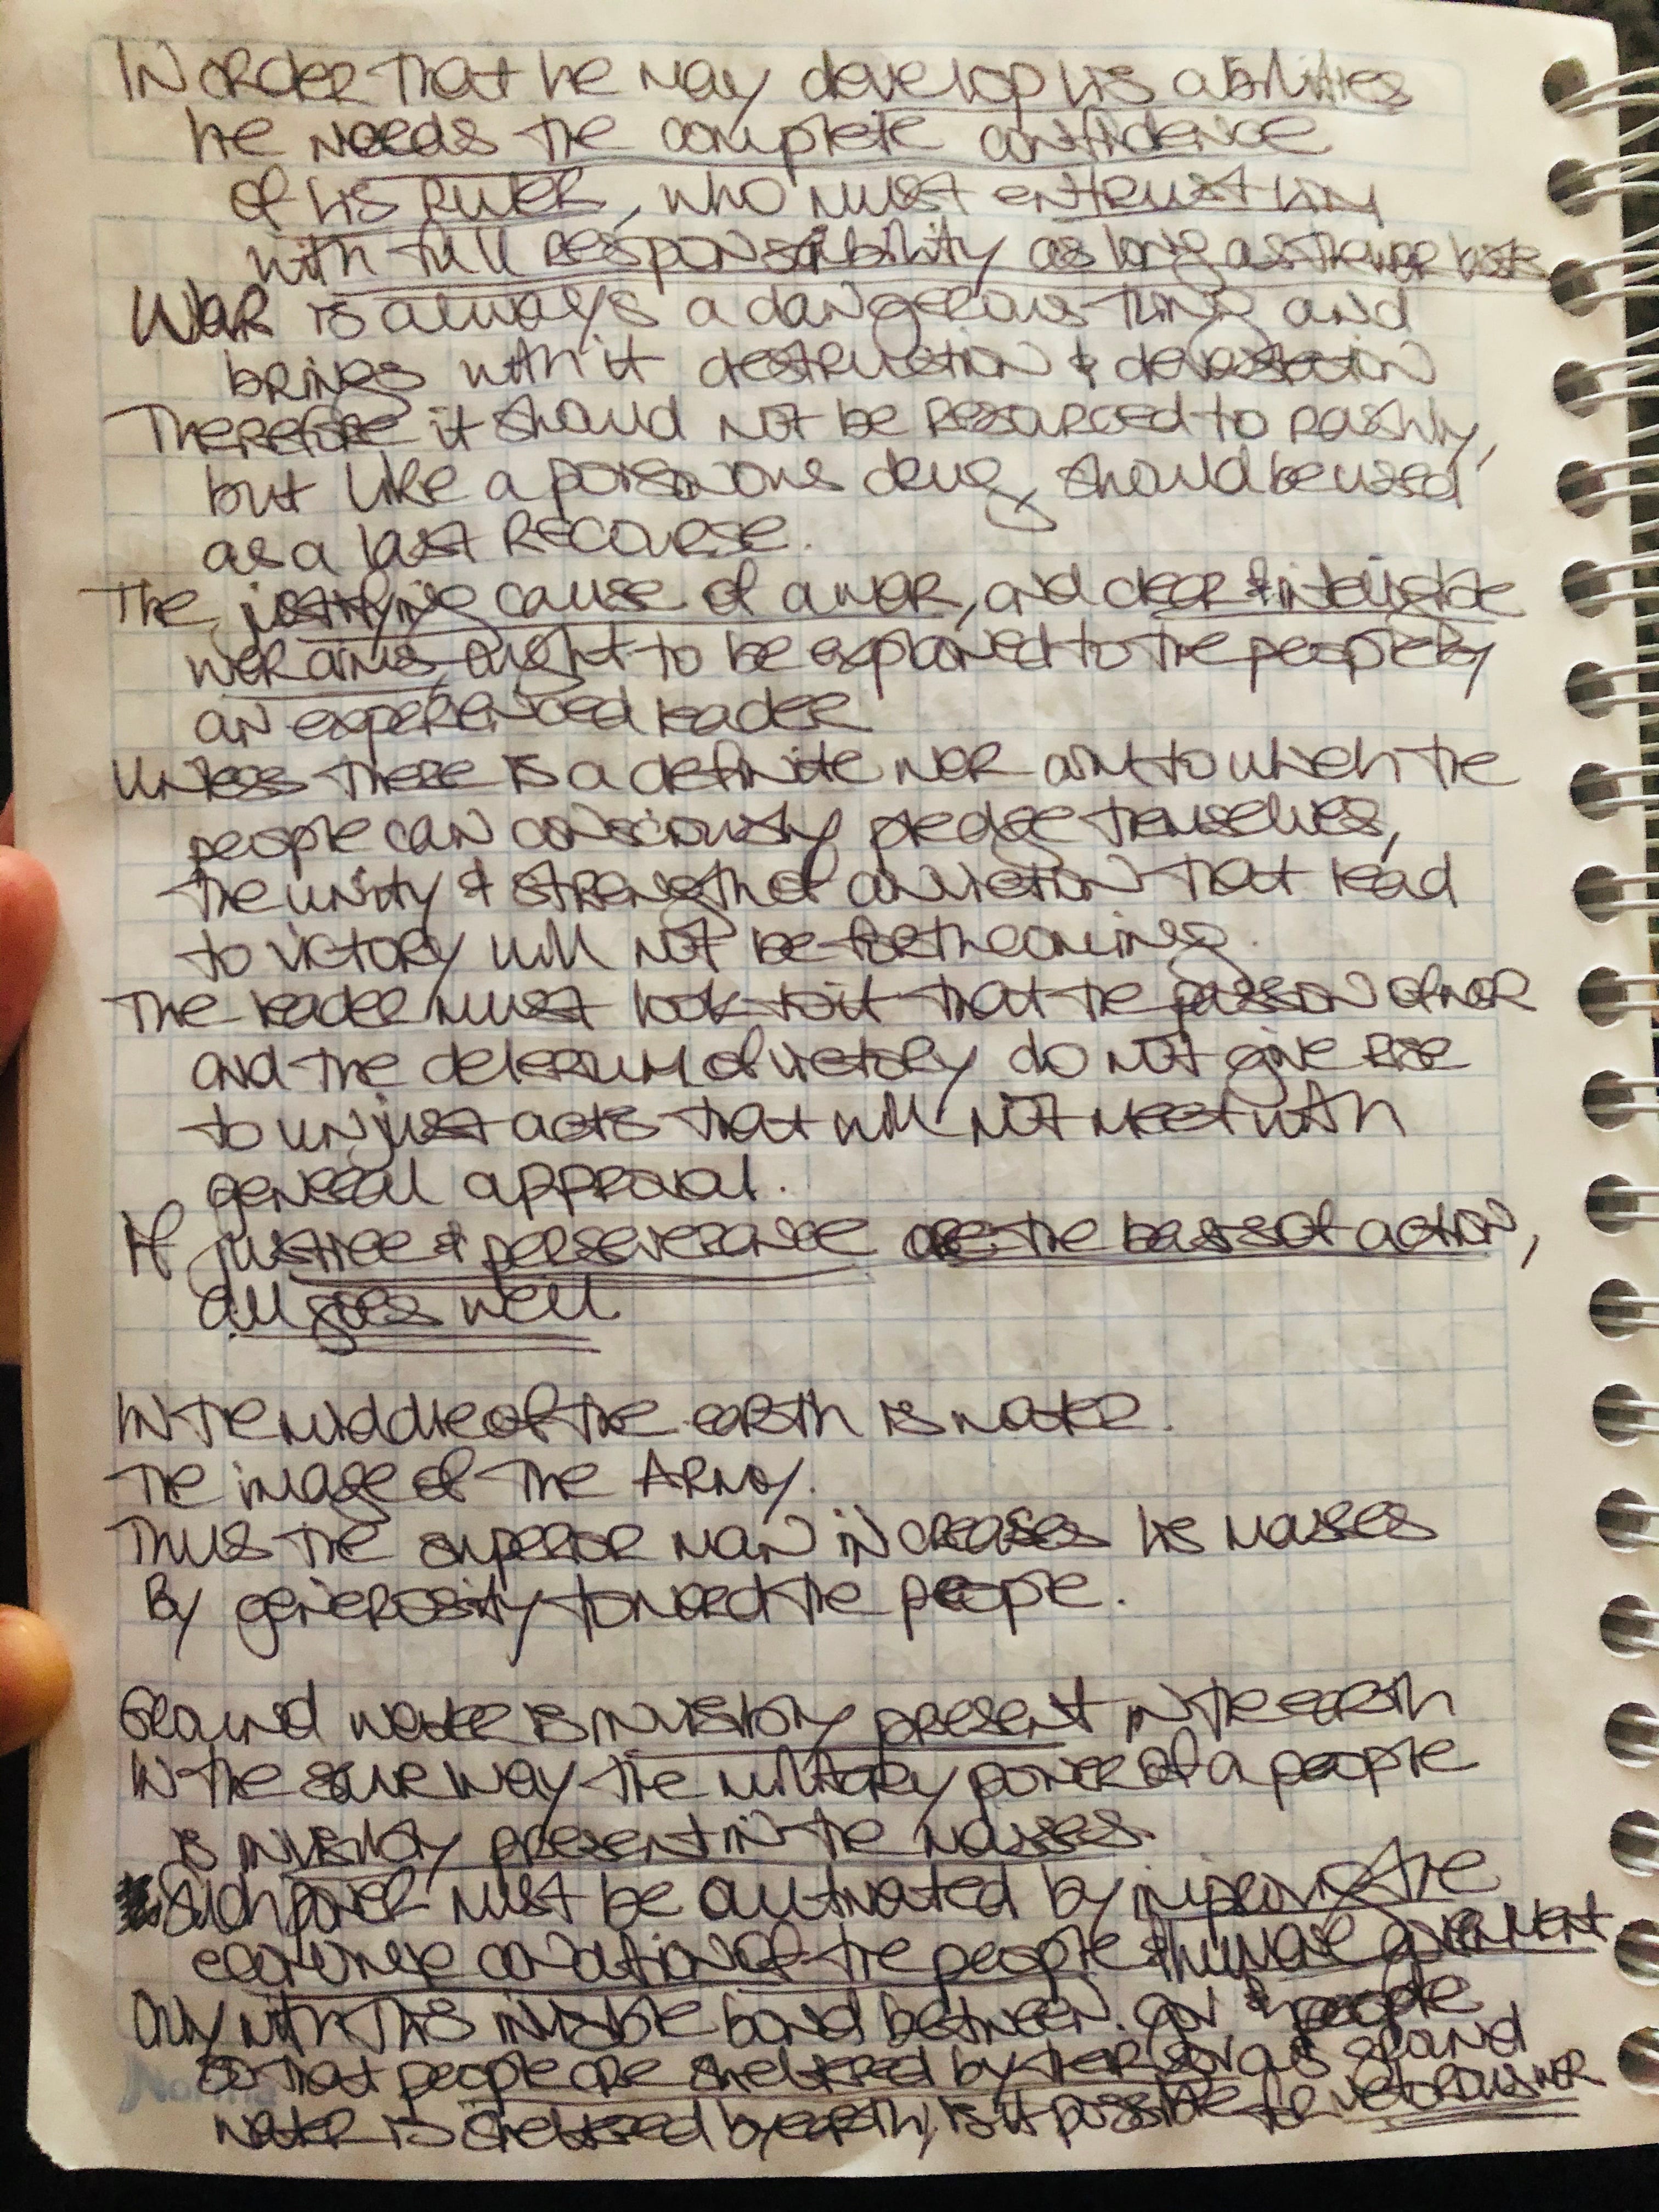 In order that he may develop his abilities
he needs the complete confidence
of his ruler, who must entrust him
with full responsibility as long as the war lasts
War is always a dangerous thing and
brings with it destruction & devastation
Therefore it should not be resourced to rashly,
but like a poisonous drug, should be used
as a last RECOURSE.
The justifying cause of a war, and clear & intelligible
war aims, ought to be explained to the people by
an experienced leader
Unless there is a definite war aim to which the
people can consciously pledge themselves,
the unity & strength of conviction that lead
to victory will not be forthcoming.
The leader must look to it that the passion of war
and the delerium of victory do not give rise
to unjust acts that will not meet with
general approval.
If justice & perseverance are the basis of action,
all goes well.
In the middle of the earth is water.
The image of the Army.
Thus the superior man increases his masses
By generosity toward the people.
Ground water is invisibly present in the earth
In the same way the military power of a people
is invisibly present in the masses.
Such power must be cultivated by improving the
economic condition of the people & humane government
Only with this invisible bond between gov & people
so that people are sheltered by their gov as ground
water is sheltered by earth, is it possible for victorious war